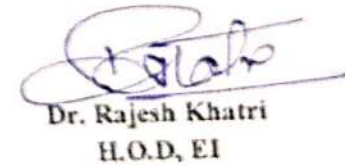 Dr. Rajesh Khatri
H.O.D, EI